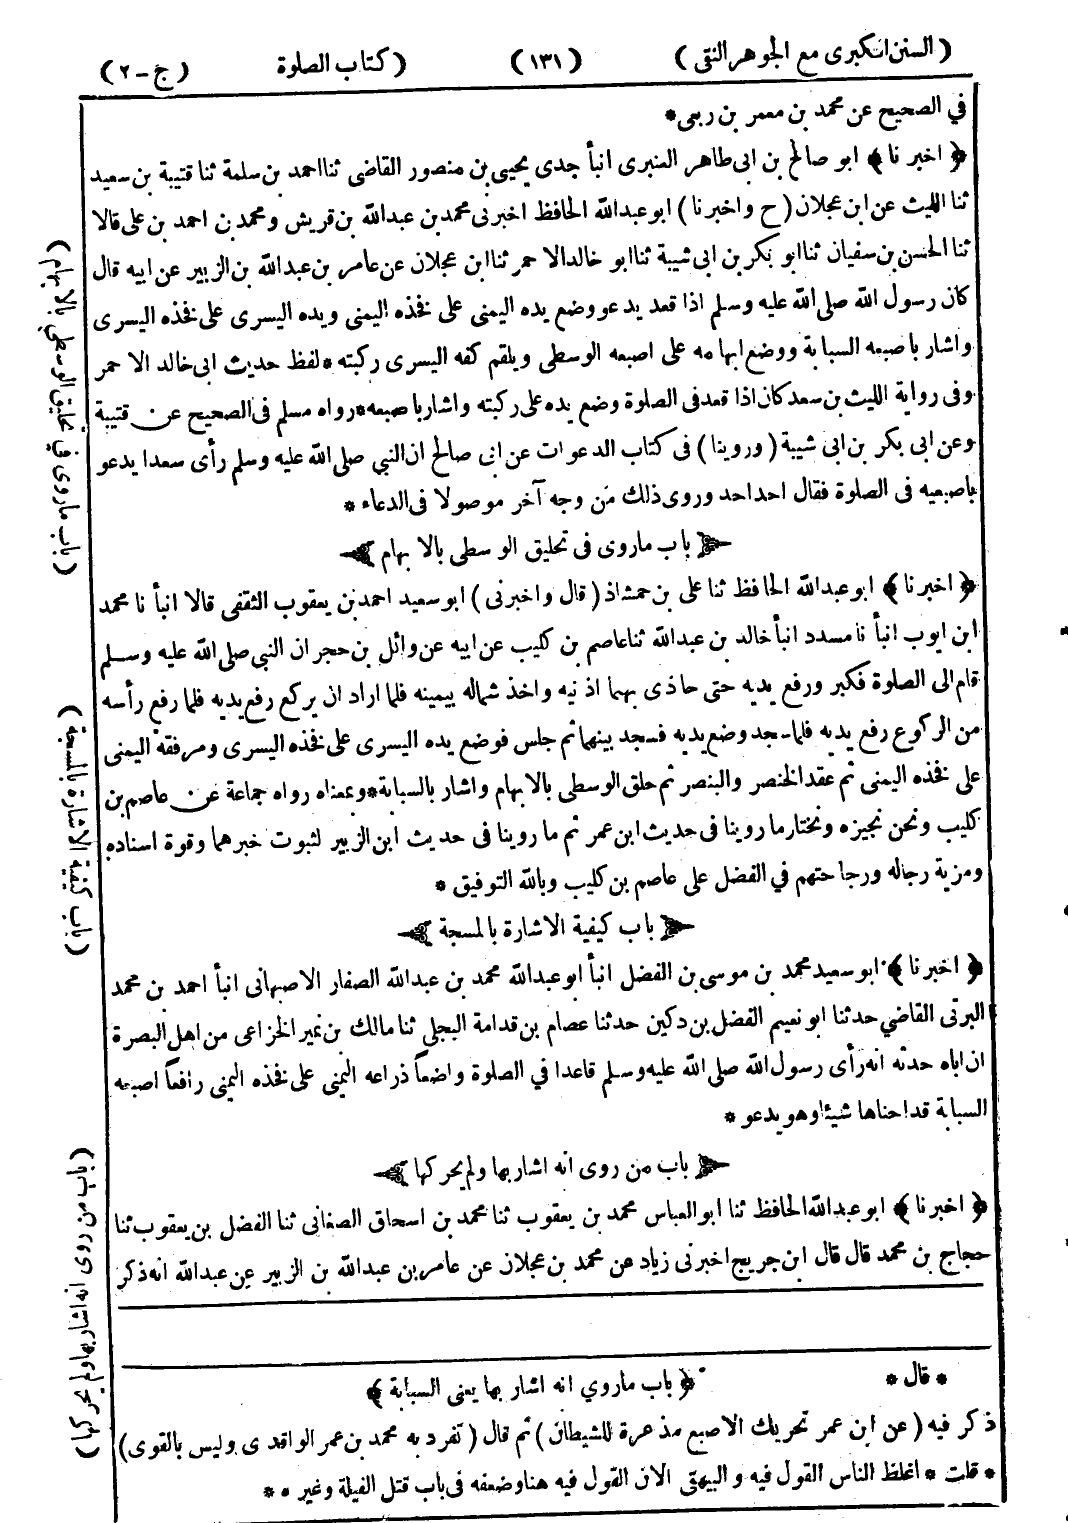 (السنن الكبرى مع الجوهر النقى) (١٣١) (كتاب الصلوة) (ج-٢)
في الصحيح عن محمد بن معمر بن ربعى*
﴿اخبرنا﴾ ابو صالح بن ابى طاهر العنبرى انبأ جدى يحيى بن منصور القاضى ثنا احمد بن سلمة ثنا قتيبة بن سعيد
ثنا الليث عن ابن عجلان (ح واخبرنا) ابو عبدالله الحافظ اخبرنى محمد بن عبدالله بن قريش ومحمد بن احمد بن على قالا
ثنا الحسن بن سفيان ثنا ابو بكر بن ابى شيبة ثنا ابو خالد الا حمر ثنا ابن عجلان عن عامر بن عبدالله بن الزبير عن ابيه قال
كان رسول الله صلى الله عليه وسلم اذا قعد يدعو وضع يده اليمنى على فخذه اليمنى ويده اليسرى على فخذه اليسرى
واشار باصبعه السبابة ووضع ابهامه على اصبعه الوسطى ويلقم كفه اليسرى ركبته * لفظ حديث ابى خالد الا حمر
وفى رواية الليث بن سعد كان اذا قعد فى الصلوة وضع يده على ركبته واشار باصبعه * رواه مسلم فى الصحيح عن قتيبة
وعن ابى بكر بن ابى شيبة (وروينا) فى كتاب الدعوات عن ابى صالح ان النبي صلى الله عليه وسلم رأى سعدا يدعو
باصبعيه فى الصلوة فقال احد احد وروى ذلك من وجه آخر موصولا فى الدعاء *
باب ماروى فى تحليق الوسطى بالا بهام
﴿اخبرنا﴾ ابو عبدالله الحافظ ثنا على بن حمشاذ (قال واخبرنى) ابو سعيد احمد بن يعقوب الثقفى قالا انبأ نا محمد
ابن ايوب انبأ نا مسدد انبأ خالد بن عبدالله ثنا عاصم بن كليب عن ابيه عن وائل بن حجر ان النبي صلى الله عليه وسلم
قام الى الصلوة فكبر ورفع يديه حتى حاذى بهما اذنيه واخذ شماله بيمينه فلما اراد ان يركع رفع يديه فلما رفع رأسه
من الركوع رفع يديه فلما سجد وضع يديه فسجد بينهما ثم جلس فوضع يده اليسرى على فخذه اليسرى ومرفقه اليمنى
على فخذه اليمنى ثم عقد الخنصر والبنصر ثم حلق الوسطى بالابهام واشار بالسبابة * وبمعناه رواه جماعة عن عاصم بن
كليب ونحن نجيزه ونختار ما روينا فى حديث ابن عمر ثم ما روينا فى حديث ابن الزبير لثبوت خبرهما وقوة اسناده
ومزية رجاله ورجاحتهم في الفضل على عاصم بن كليب وبالله التوفيق *
باب كيفية الاشارة بالمسبحة
﴿اخبرنا﴾ ابو سعيد محمد بن موسى بن الفضل انبأ ابو عبدالله محمد بن عبدالله الصفار الاصبهانى انبأ احمد بن محمد
البرتى القاضي حدثنا ابو نعيم الفضل بن دكين حدثنا عصام بن قدامة البجلى ثنا مالك بن نمير الخزاعى من اهل البصرة
ان اباه حدثه انه رأى رسول الله صلى الله عليه وسلم قاعدا في الصلوة واضعاً ذراعه اليمنى على فخذه اليمنى رافعاً اصبعه
السبابة قد احناها شيئا وهو يدعو *
باب من روى انه اشار بها ولم يحركها
﴿اخبرنا﴾ ابو عبدالله الحافظ ثنا ابو العباس محمد بن يعقوب ثنا محمد بن اسحاق الصغانى ثنا الفضل بن يعقوب ثنا
حجاج بن محمد قال قال ابن جريج اخبرنى زياد عن محمد بن عجلان عن عامر بن عبدالله بن الزبير عن عبدالله انه ذكر
(باب ماروى في تحليق الوسطي بالا بهام)
(باب كيفية الاشارة بالمسبحة)
(باب من روى انه اشار بها ولم يحركها)
* قال * ﴿باب ماروي انه اشار بها يعنى السبابة﴾
ذكر فيه (عن ابن عمر تحريك الاصبع مذعرة للشيطان) ثم قال (تفرد به محمد بن عمر الواقدى وليس بالقوى)
* قلت * اغلظ الناس القول فيه و البيهقى الان القول فيه هنا وضعفه فى باب قتل الفيلة وغيره *